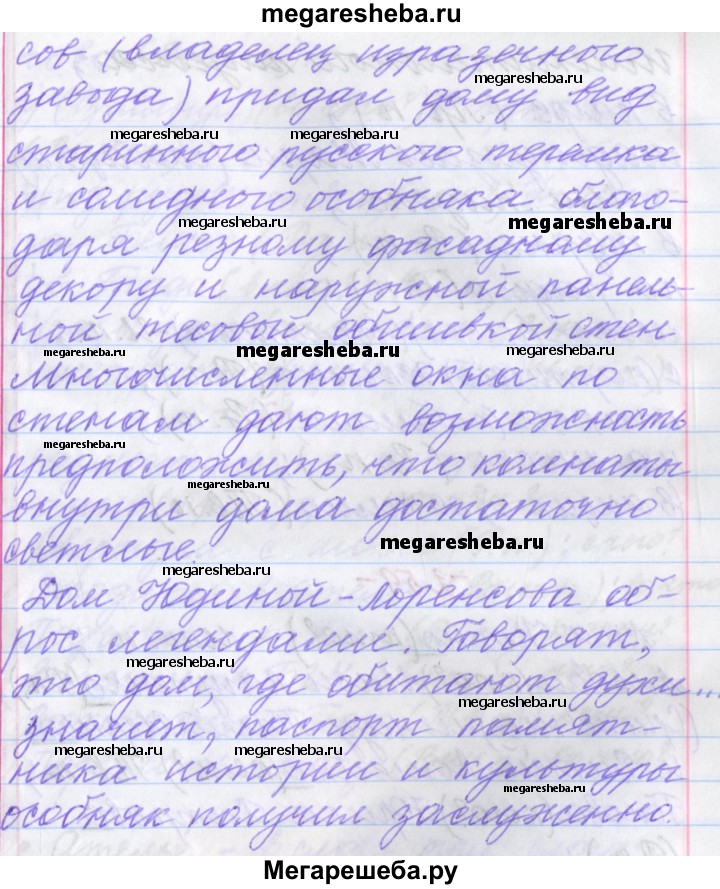 megaresheba.ru
сов (владелец изразечного
megaresheba.ru
завода) придал дому вид
megaresheba.ru megaresheba.ru
старинного русского теремка
и солидного особняка благо-
megaresheba.ru megaresheba.ru
даря резному фасадному
декору и наружной панель-
ной тесовой обшивкой стен
megaresheba.ru megaresheba.ru megaresheba.ru
Многочисленные окна по
стенам дают возможность
megaresheba.ru
предположить, что комнаты
megaresheba.ru
внутри дома достаточно
светлые.
megaresheba.ru
Дом Юдиной-Лоренсова об-
рос легендами. Говорят,
megaresheba.ru
это дом, где обитают духи...
megaresheba.ru
значит, паспорт памят-
megaresheba.ru megaresheba.ru
ника истории и культуры
megaresheba.ru
особняк получил заслуженно.
Мегарешеба.ру